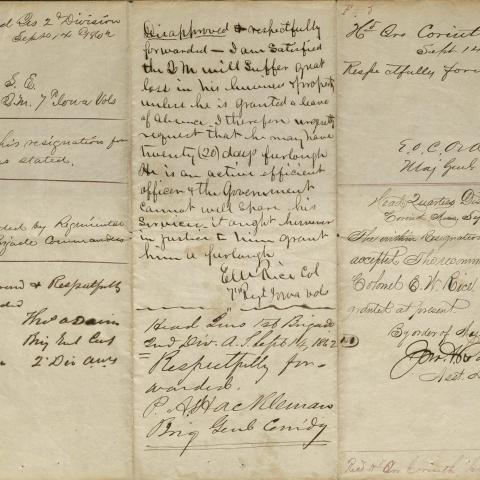 d Qrs 2d Division
Sept 14 1862
S. E.
Q.M. 7th Iowa Vols
his resignation for
as stated.
ded by Regimental
Brigade Commanders
and & Respectfully
ded
Thos a Davies
Brig Genl Com
2d Div
Disapproved & respectfully
forwarded — I am Satisfied
the Q M will Suffer great
loss in his business & property
unless he is granted a leave
of absence. I therefore urgently
request that he may have
twenty (20) days furlough
He is an active efficient
officer & the Government
cannot well Spare his
Services. it ought however
in justice to him grant
him a furlough
E W Rice Col
7th Regt Iowa Vols
Head Qurs 1st Brigade
2nd Div. A. Sept 14, 1862
Respectfully for-
warded.
P. A. Hackleman
Brig Genl Comdg
Hd Qrs Corinth
Sept 14
Respectfully for
E. O. C. Ord
Maj Genl
Head Quarters Dis
Corinth Miss, Sep
The within Resignation
accepted The recomm
Colonel E. W. Rice
granted at present.
By order of Maj
Asst.
Recd Hd Qrs Corinth